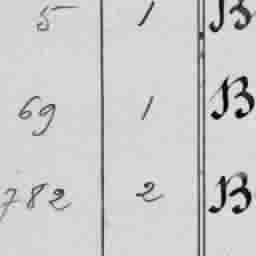 5 1 B
69 1 B
782 2 B